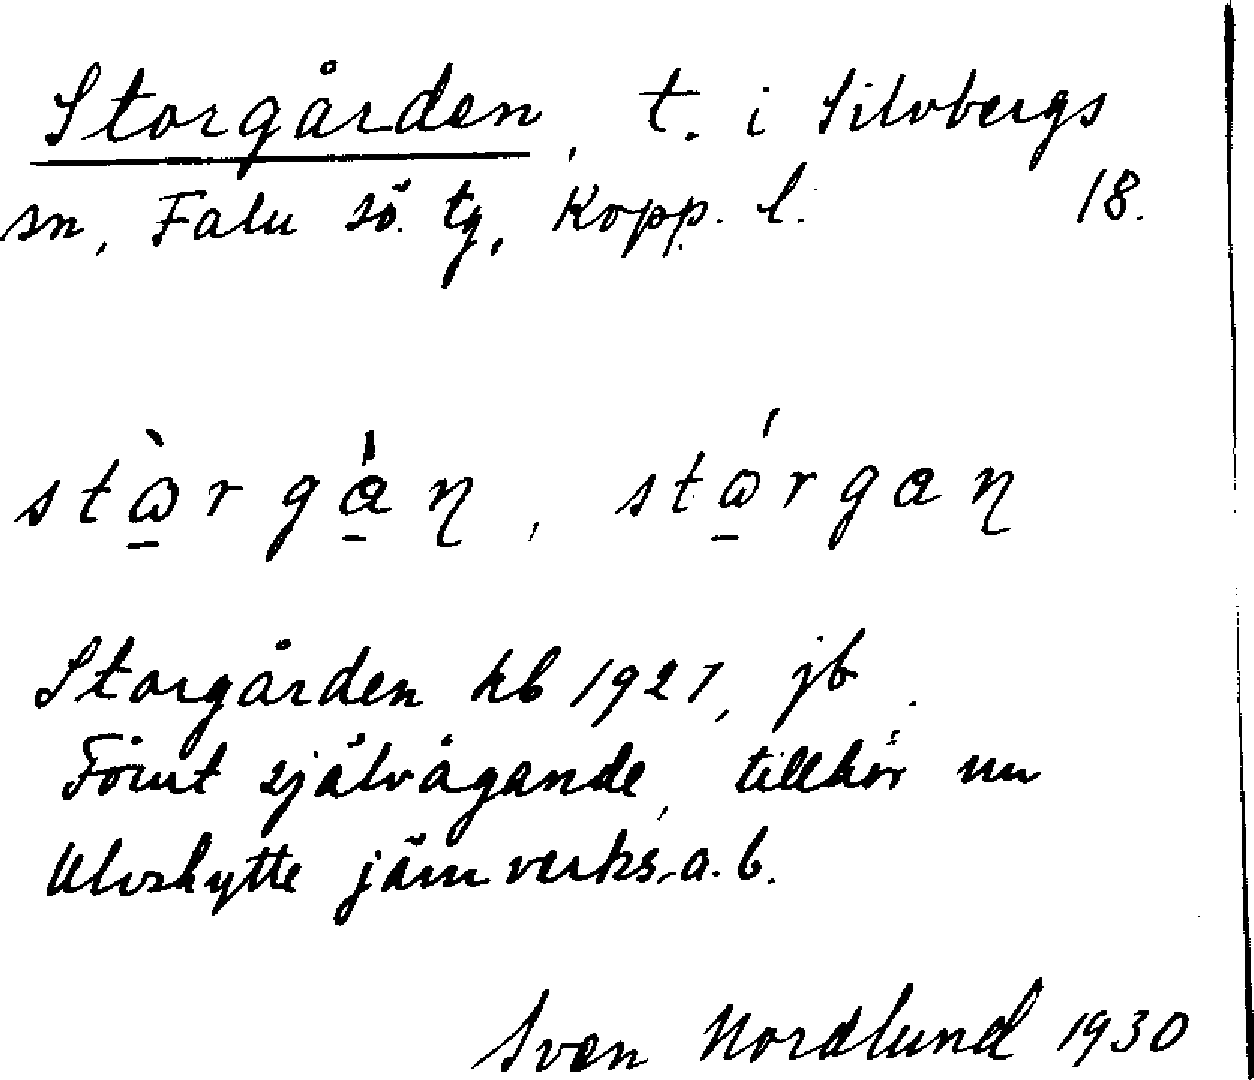 Storgården, t. i Silvbergs
sn, Falu sö. tg, Kopp. l. 18.
stàrgàn, stárgan
Storgården kb 1927, jb.
Förut självägande, tillhör nu
Ulvshytte järnverks a.b.
Sven Nordlund 1930